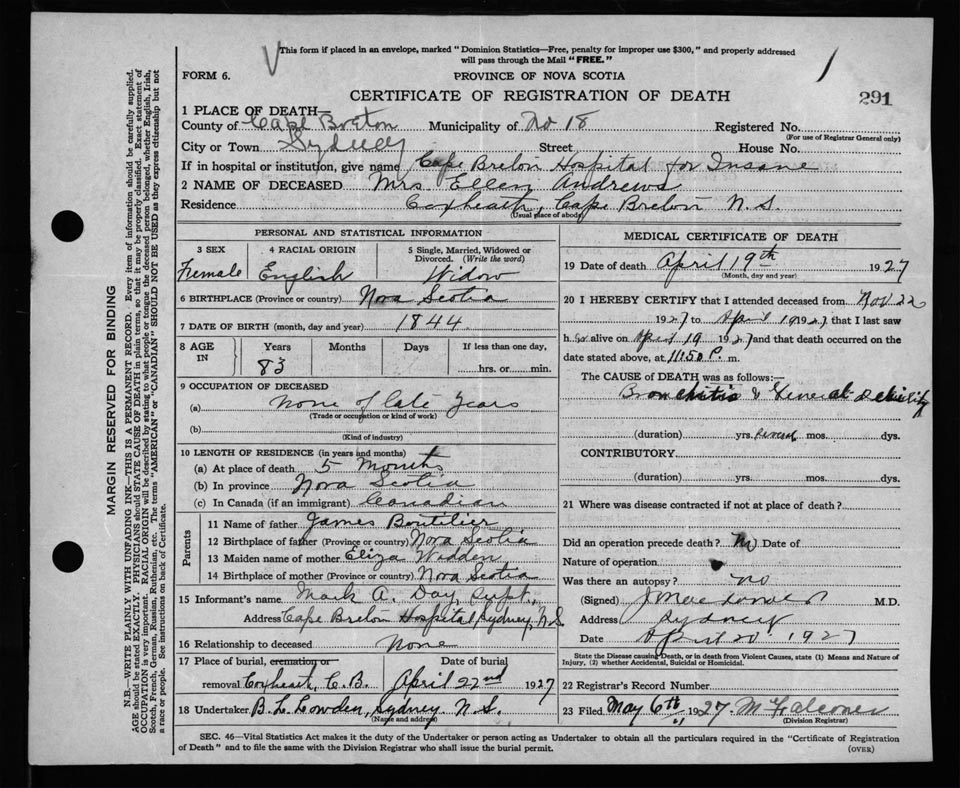 This form if placed in an envelope, marked "Dominion Statistics—Free, penalty for improper use $300," and properly addressed
will pass through the Mail "FREE."
FORM 6.
PROVINCE OF NOVA SCOTIA
CERTIFICATE OF REGISTRATION OF DEATH
291
1 PLACE OF DEATH—
County of Cape Breton Municipality of No 18 Registered No.
(For use of Registrar General only)
City or Town Sydney Street House No.
If in hospital or institution, give name Cape Breton Hospital for Insane
2 NAME OF DECEASED Mrs Ellen Andrews
Residence Coxheath, Cape Breton N.S.
(Usual place of abode)
PERSONAL AND STATISTICAL INFORMATION
3 SEX
Female
4 RACIAL ORIGIN
English
5 Single, Married, Widowed or
Divorced. (Write the word)
Widow
6 BIRTHPLACE (Province or country) Nova Scotia
7 DATE OF BIRTH (month, day and year) 1844
8 AGE
IN
Years
83
Months
Days
If less than one day,
hrs. or min.
9 OCCUPATION OF DECEASED
(a) None of late Years
(Trade or occupation or kind of work)
(b)
(Kind of industry)
10 LENGTH OF RESIDENCE (in years and months)
(a) At place of death 5 Months
(b) In province Nova Scotia
(c) In Canada (if an immigrant) Canadian
Parents
11 Name of father James Boutilier
12 Birthplace of father (Province or country) Nova Scotia
13 Maiden name of mother Eliza
14 Birthplace of mother (Province or country) Nova Scotia
15 Informant's name Mark A. Day, Supt,
Address Cape Breton Hospital, Sydney, N.S
16 Relationship to deceased None
17 Place of burial, cremation or
removal Coxheath, C.B.
Date of burial
April 22nd 1927
18 Undertaker B. L. Lowden, Sydney N.S.
(Name and address)
MEDICAL CERTIFICATE OF DEATH
19 Date of death April 19th 1927
(Month, day and year)
20 I HEREBY CERTIFY that I attended deceased from Nov 22
1927 to April 19 1927 that I last saw
h er alive on April 19 1927 and that death occurred on the
date stated above, at 11:50 P. m.
The CAUSE of DEATH was as follows:—
Bronchitis & General debility
(duration) yrs. several mos. dys.
CONTRIBUTORY
(duration) yrs. mos. dys.
21 Where was disease contracted if not at place of death?
Did an operation precede death? Date of
Nature of operation
Was there an autopsy? no
(Signed) M.D.
Address Sydney
Date April 20, 1927
State the Disease causing Death, or in death from Violent Causes, state (1) Means and Nature of
Injury, (2) whether Accidental, Suicidal or Homicidal.
22 Registrar's Record Number
23 Filed May 6th 1927 M Falconer
(Division Registrar)
SEC. 46—Vital Statistics Act makes it the duty of the Undertaker or person acting as Undertaker to obtain all the particulars required in the "Certificate of Registration
of Death" and to file the same with the Division Registrar who shall issue the burial permit.
(OVER)
MARGIN RESERVED FOR BINDING
N.B.—WRITE PLAINLY WITH UNFADING INK—THIS IS A PERMANENT RECORD. Every item of information should be carefully supplied.
AGE should be stated EXACTLY. PHYSICIANS should STATE CAUSE OF DEATH in plain terms, so that it may be properly classified. Exact statement of
OCCUPATION is very important. RACIAL ORIGIN will be described by stating to what people or tongue the deceased person belonged, whether English, Irish,
Scotch, French, German, Russian, Ruthenian, etc. The terms "AMERICAN" or "CANADIAN" SHOULD NOT BE USED as they express citizenship but not
a race or people. See instructions on back of Certificate.